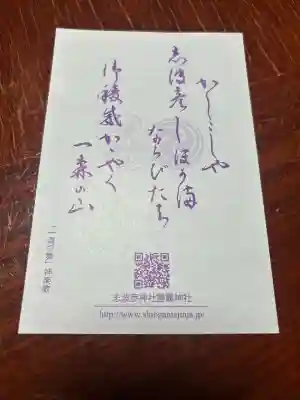 かしこしや
志波彦しほがま
ならびたち
御稜威かゞやく
一森の山
志波彦神社鹽竈神社
http://www.shiogamajinja.jp/